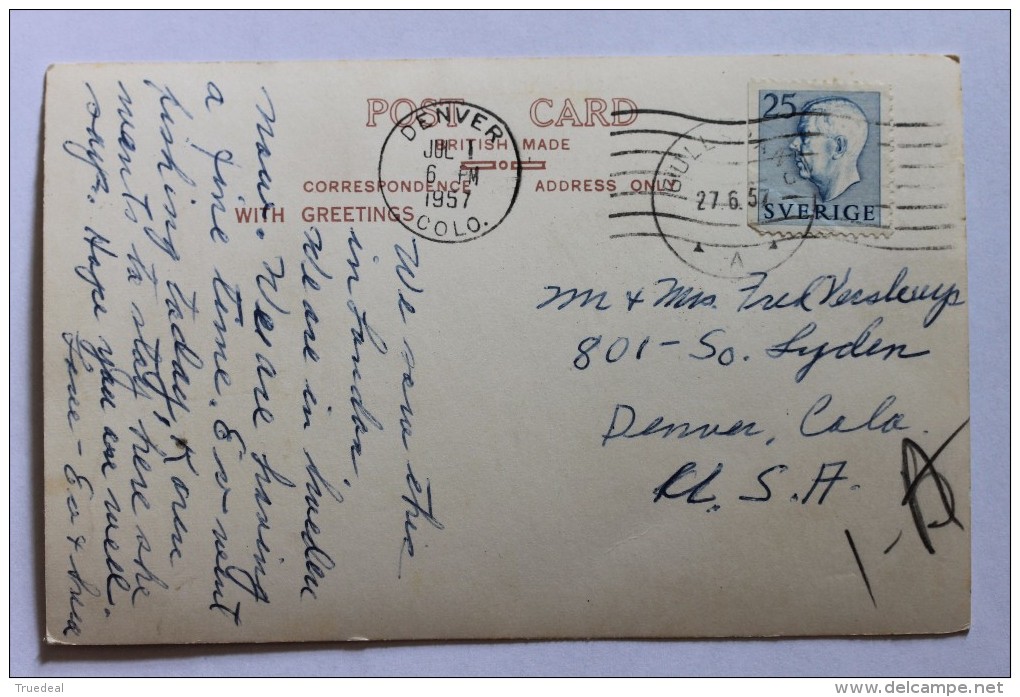 POST CARD
BRITISH MADE
CORRESPONDENCE
ADDRESS ONLY
WITH GREETINGS
DENVER
JUL 1
6 PM
1957
COLO.
27.6.57
A
25
SVERIGE
We saw this
in London.
We are in Sweden
now. We are having
a fine time. Ev went
fishing today, Karen
wants to stay here she
says. Hope you are well.
Love - Ev &
Mr & Mrs. Fred
801 - So. Lyden
Denver, Colo.
U. S. A.
Truedeal
www.delcampe.net